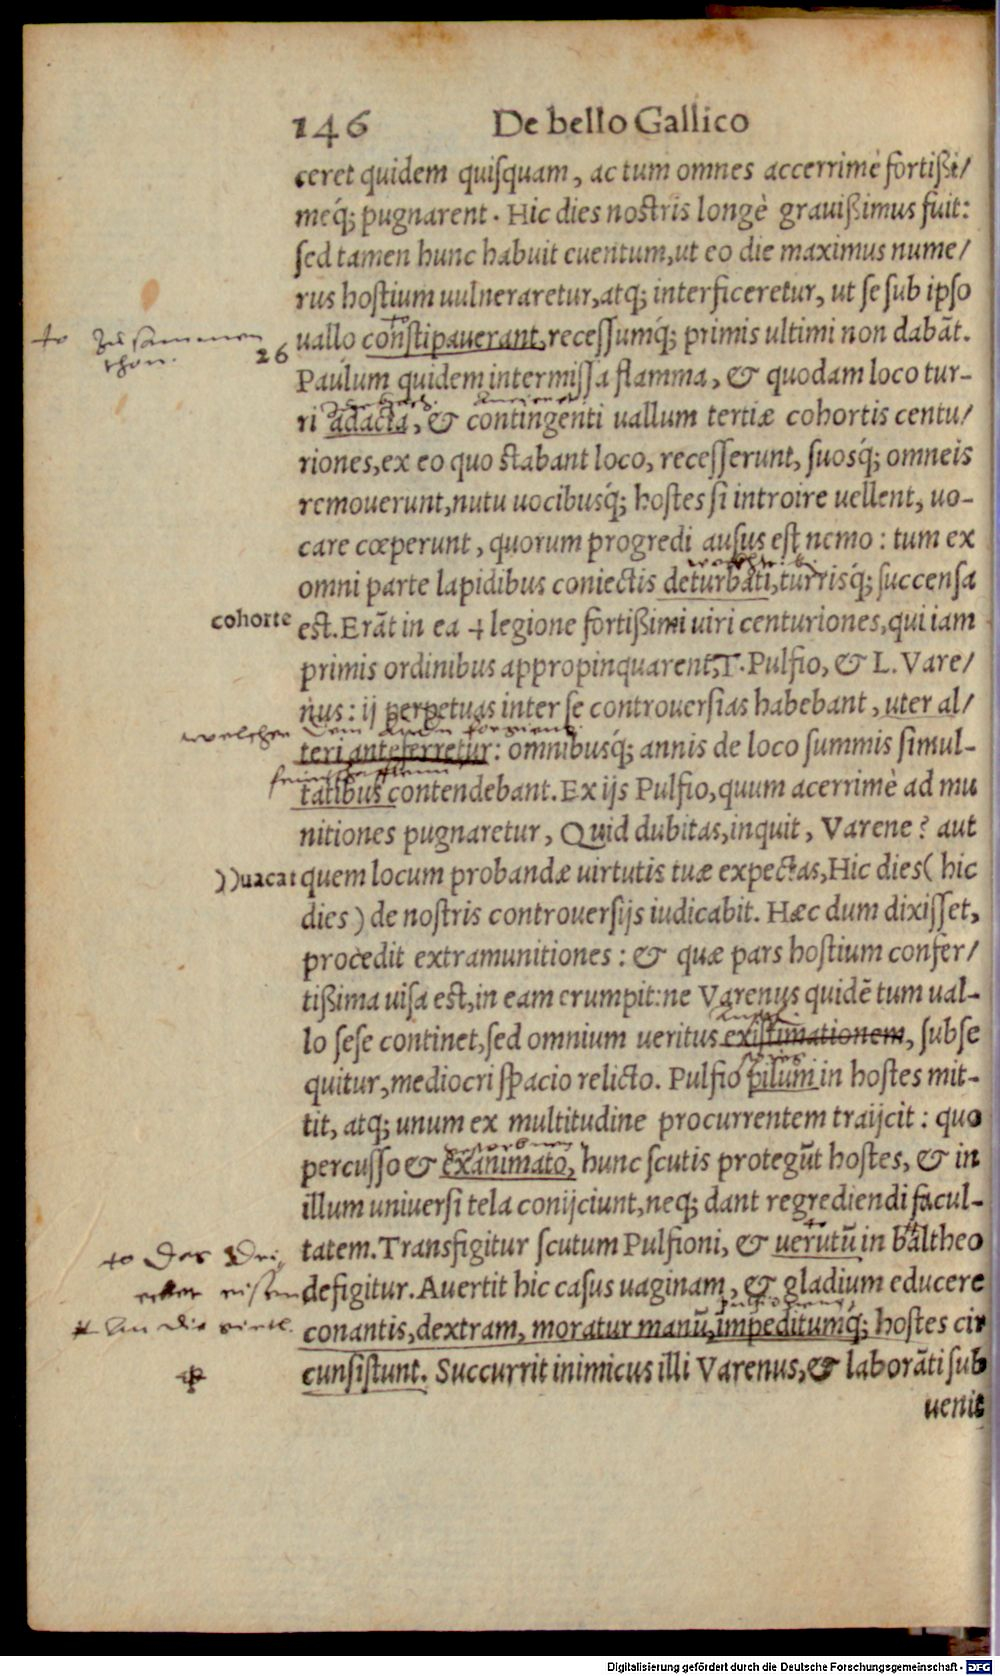 146 De bello Gallico
ceret quidem quiſquam, ac tum omnes accerrimè fortißi/
meq́; pugnarent. Hic dies noſtris longè grauißimus fuit:
ſed tamen hunc habuit euentum, ut eo die maximus nume/
rus hoſtium uulneraretur, atq; interficeretur, ut ſe ſub ipſo
to zusammen
uallo conſtipauerant, receſſumq́; primis ultimi non dabāt.
thon.
26
Paulum quidem intermiſſa flamma, & quodam loco tur-
ri adacta, & contingenti uallum tertiæ cohortis centu/
riones, ex eo quo ſtabant loco, receſſerunt, ſuosq́; omneis
remouerunt, nutu uocibusq́; hoſtes ſi introire uellent, uo-
care cœperunt, quorum progredi auſus eſt nemo: tum ex
omni parte lapidibus coniectis deturbati, turrisq́; ſuccenſa
cohorte
eſt. Erāt in ea + legione fortißimi uiri centuriones, qui iam
primis ordinibus appropinquarent, T. Pulfio, & L. Vare/
nus: ij perpetuas inter ſe controuerſias habebant, uter al/
welcher dem andn
teri anteferretur: omnibusq́; annis de loco ſummis ſimul-
tatibus contendebant. Ex ijs Pulfio, quum acerrimè ad mu
nitiones pugnaretur, Quid dubitas, inquit, Varene? aut
))uacat
quem locum probandæ uirtutis tuæ expectas, Hic dies (hic
dies) de noſtris controuerſijs iudicabit. Hæc dum dixiſſet,
procedit extra munitiones: & quæ pars hoſtium confer/
tißima uiſa eſt, in eam erumpit: ne Varenus quidē tum ual-
lo ſeſe continet, ſed omnium ueritus exiſtimationem, ſubſe
quitur, mediocri ſpacio relicto. Pulfio pilum in hoſtes mit-
tit, atq; unum ex multitudine procurrentem traijcit: quo
percuſſo & exanimato, hunc ſcutis protegūt hoſtes, & in
illum uniuerſi tela conijciunt, neq; dant regrediendi facul-
tatem. Transfigitur ſcutum Pulfioni, & uerutū in baltheo
defigitur. Auertit hic caſus uaginam, & gladium educere
conantis, dextram, moratur manū, impeditumq́; hoſtes cir
cunſiſtunt. Succurrit inimicus illi Varenus, & laborāti ſub
uenit
Digitalisierung gefördert durch die Deutsche Forschungsgemeinschaft - DFG